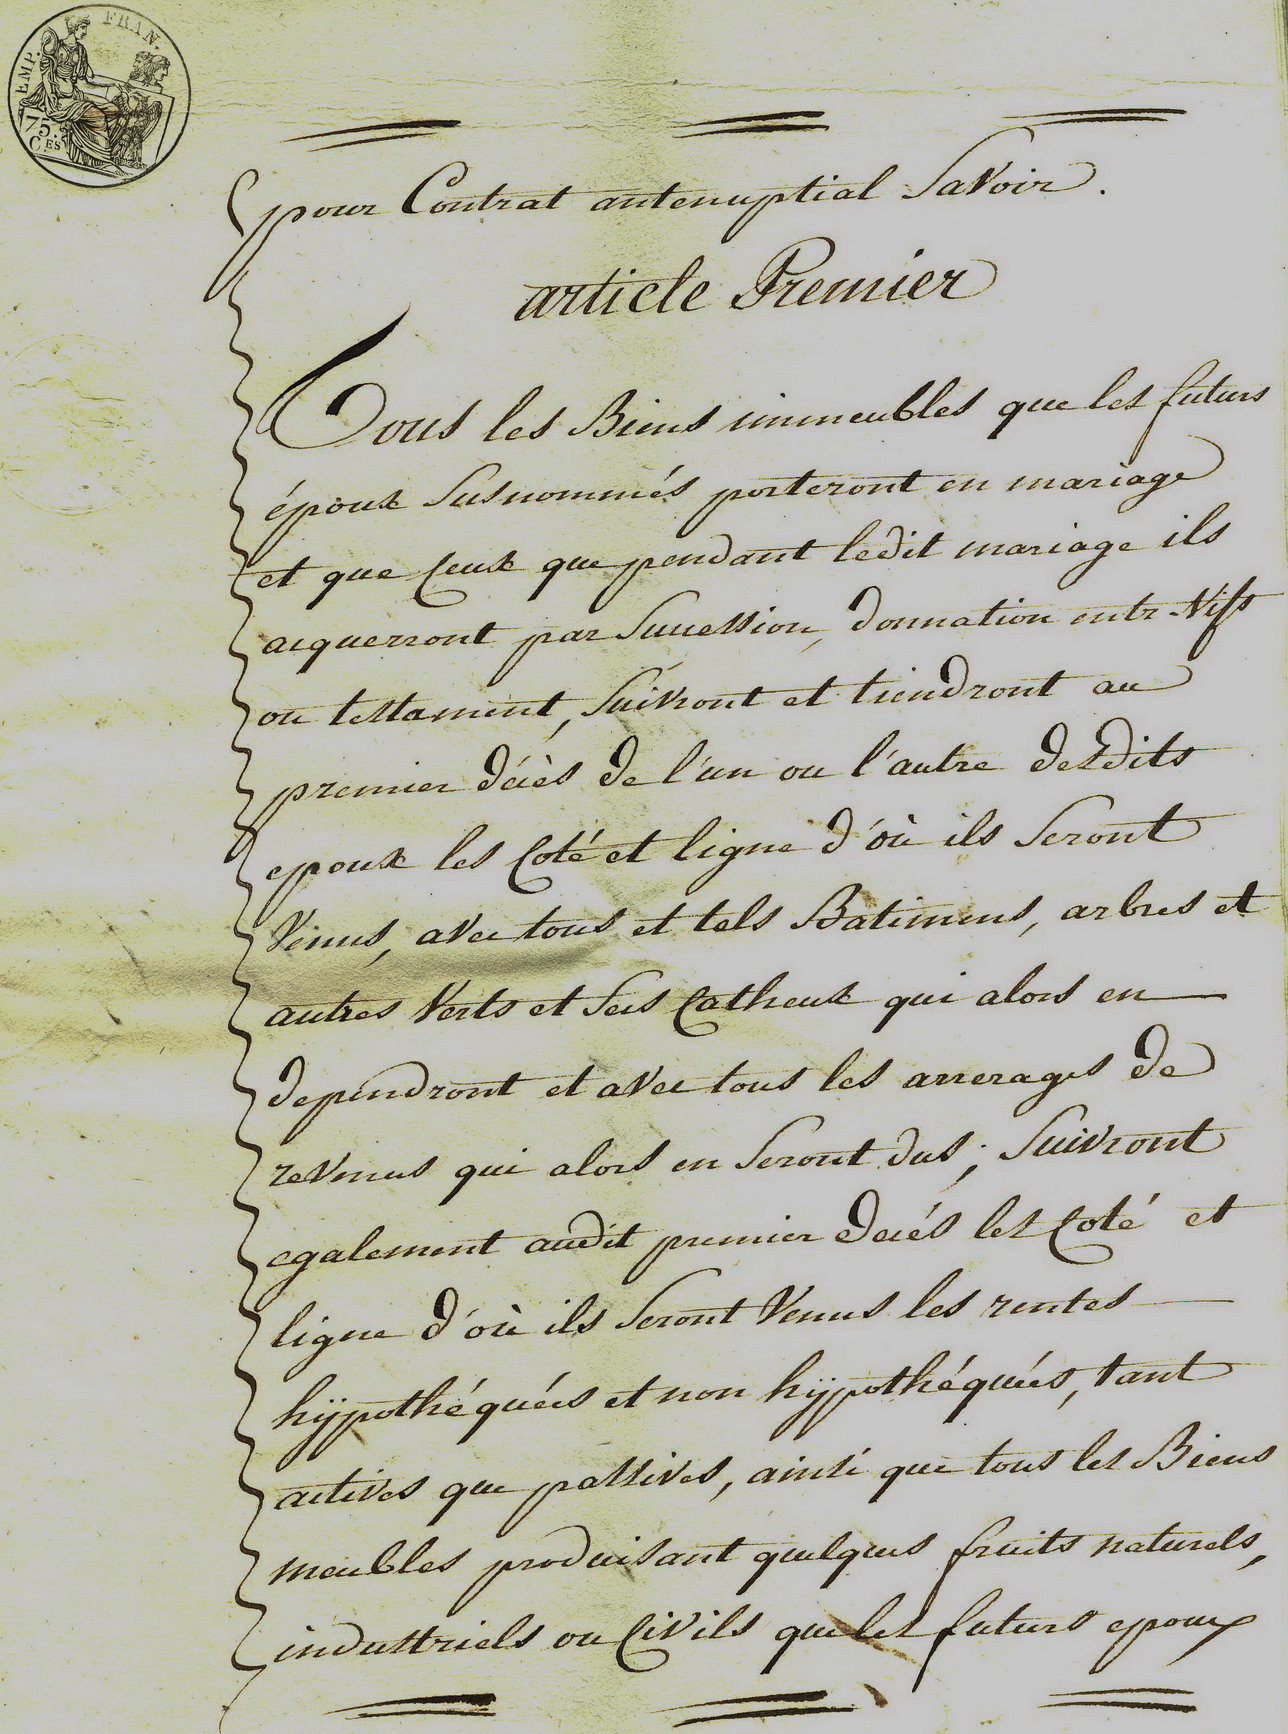 EMP. FRAN.
75.
C.ES
pour Contrat antenuptial Savoir.
article Premier
Tous les Biens immeubles que les futurs
époux Susnommés porteront en mariage
et que Ceux que pendant ledit mariage ils
acquerront par Succession, donnation entr-Vifs
ou testament, Suivront et tiendront au
premier décès de l'un ou l'autre desdits
epoux les Coté et ligne d'où ils Seront
Venus, avec tous et tels Batimens, arbres et
autres Verts et Secs Catheux qui alors en
dependront et avec tous les arrerages de
revenus qui alors en Seront dus; Suivront
egalement audit premier decés les Coté et
ligne d'où ils Seront Venus les rentes
hÿpothéquées et non hÿpothéquées, tant
actives que passives, ainsi que tous les Biens
meubles produisant quelques fruits naturels,
industriels ou Civils que les futurs epoux